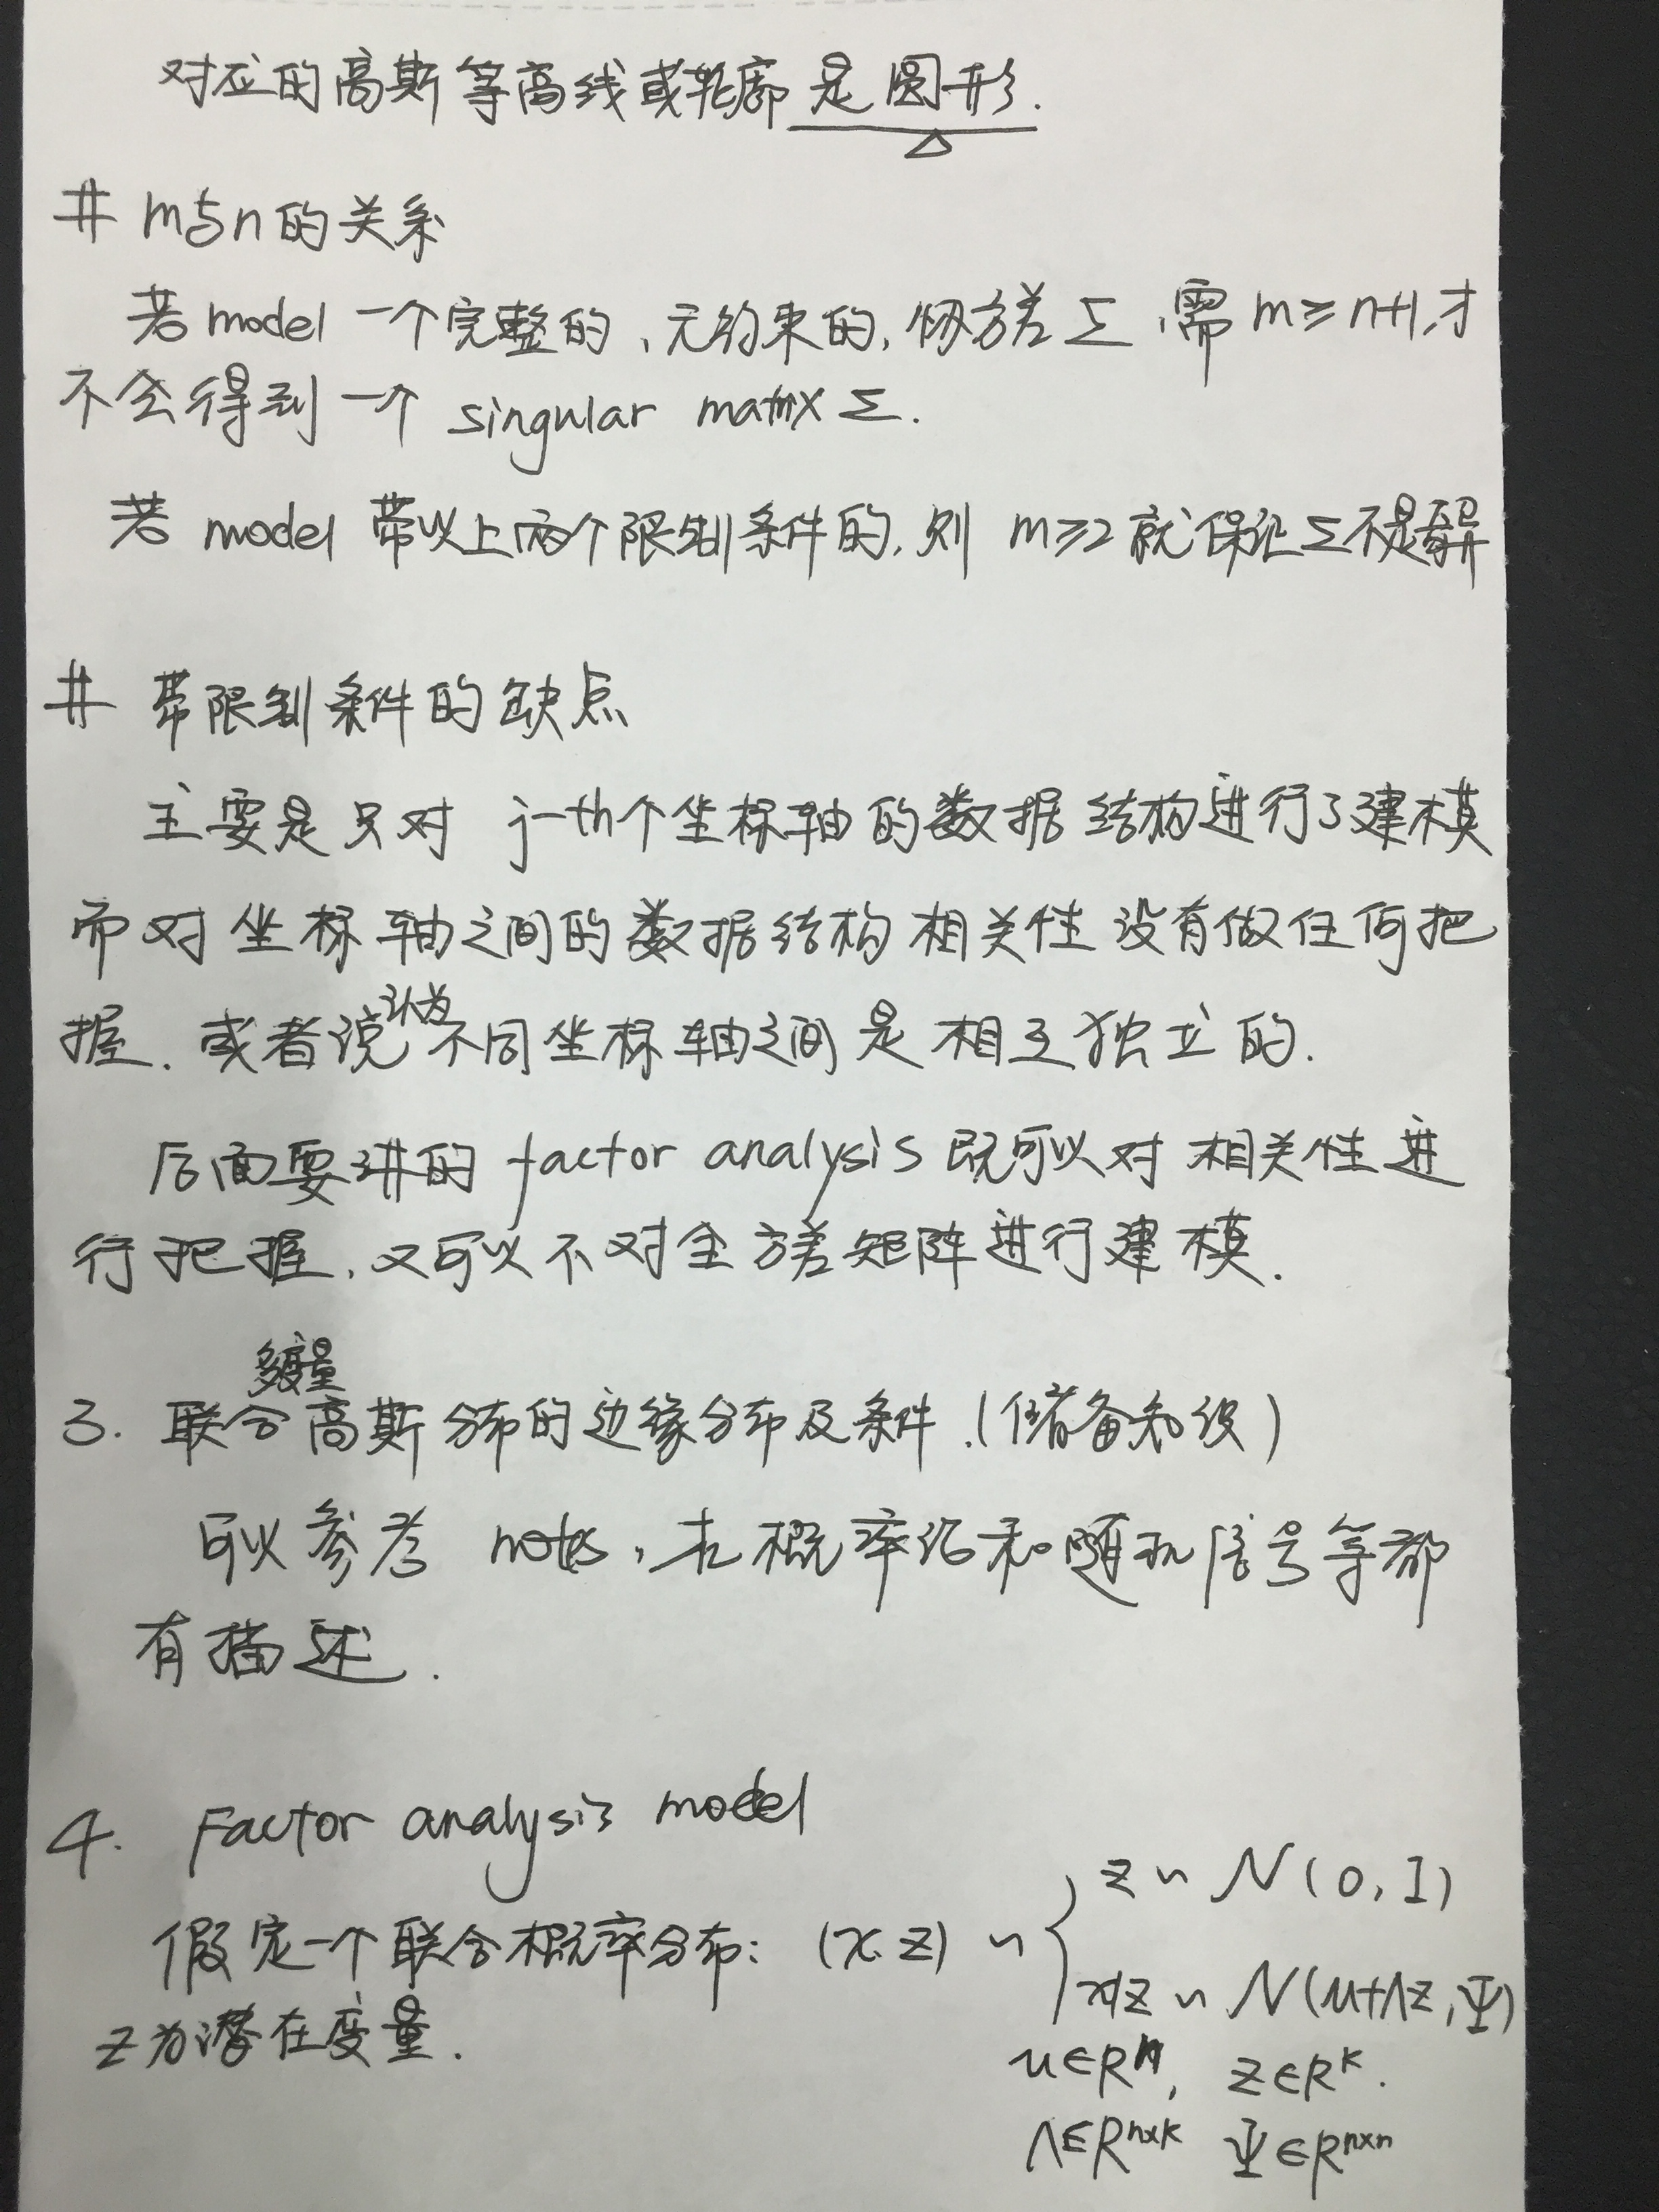 对应的高斯等高线或轮廓是圆形.
# m与n的关系
若model 一个完整的、无约束的, 协方差 Σ, 需 m≥n+1,才
不会得到一个 singular matrix Σ.
若 model 带以上两个限制条件的, 则 m≥2 就保证Σ不是奇异
# 带限制条件的缺点
主要是只对 j-th个坐标轴的数据结构进行了建模
而对坐标轴之间的数据结构相关性没有做任何把
握. 或者说认为不同坐标轴之间是相互独立的.
后面要讲的 factor analysis 既可以对相关性进
行把握, 又可以不对全方差矩阵进行建模.
多变量
3. 联合高斯分布的边缘分布及条件.(储备知识)
可以参考 notes, 在概率论和随机信号等都
有描述.
4. Factor analysis model
假定一个联合概率分布: (x, z) ~ { z ~ N(0, I)
x|z ~ N(u+Λz, Ψ)
z为潜在变量.
u∈Rⁿ, z∈Rᵏ.
Λ∈Rⁿˣᵏ Ψ∈Rⁿˣⁿ